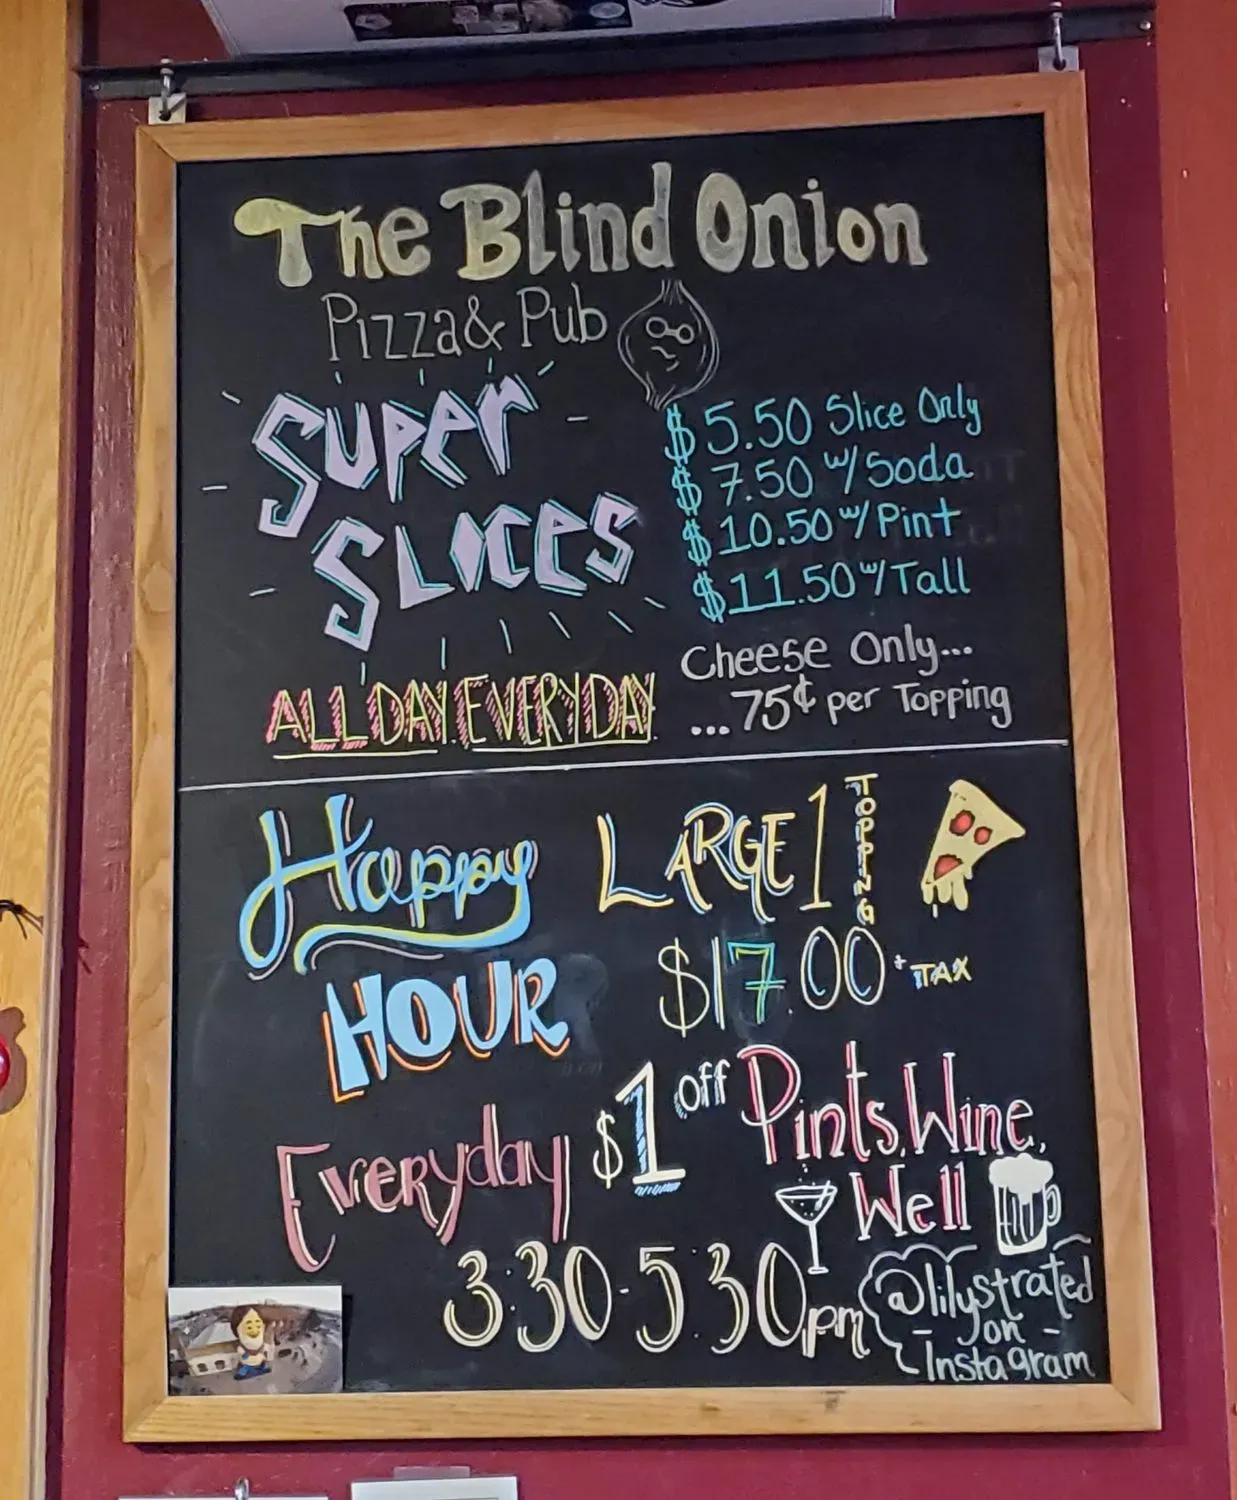 The Blind Onion
Pizza & Pub
Super
Slices
$5.50 Slice Only
$7.50 w/ Soda
$10.50 w/ Pint
$11.50 w/ Tall
Cheese Only...
...75¢ per Topping
ALL DAY. EVERYDAY.
Happy
HOUR
Everyday
LARGE 1 TOPPING
$17.00 + TAX
$1 off Pints, Wine,
Well
3:30-5:30pm
@lilystrated
- on -
Instagram